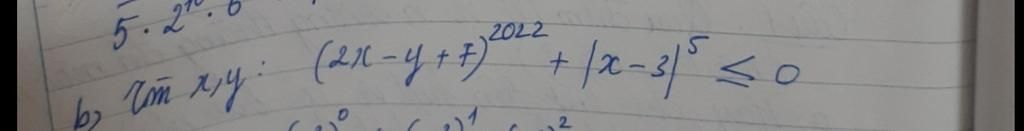 5 . 2¹⁰ . 6
b) Tìm x, y : (2x - y + 7)²⁰²² + |x - 3|⁵ ≤ 0